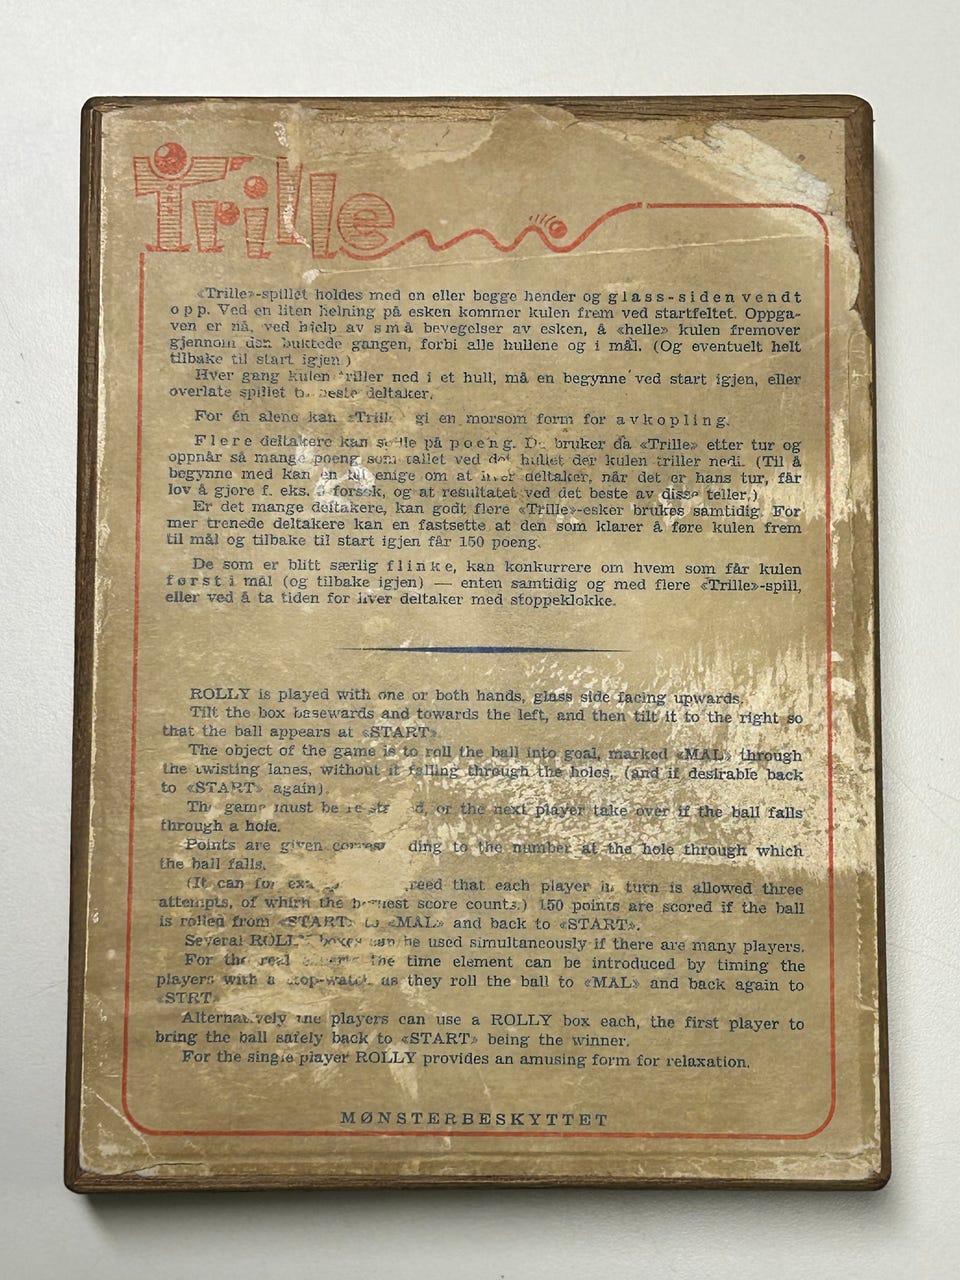 Trille
«Trille»-spillet holdes med en eller begge hender og glass-siden vendt
opp. Ved en liten helning på esken kommer kulen frem ved startfeltet. Oppga-
ven er nå, ved hjelp av små bevegelser av esken, å «helle» kulen fremover
gjennom den buktede gangen, forbi alle hullene og i mål. (Og eventuelt helt
tilbake til start igjen.)
Hver gang kulen triller ned i et hull, må en begynne ved start igjen, eller
overlate spillet neste deltaker.
For én alene kan «Trille gi en morsom form for avkopling.
Flere deltakere kan spille på poeng. De bruker da «Trille» etter tur og
oppnår så mange poeng som tallet ved det hullet der kulen triller nedi. (Til å
begynne med kan en bli enige om at hver deltaker, når det er hans tur, får
lov å gjøre f. eks. forsøk, og at resultatet ved det beste av disse teller.)
Er det mange deltakere, kan godt flere «Trille»-esker brukes samtidig. For
mer trenede deltakere kan en fastsette at den som klarer å føre kulen frem
til mål og tilbake til start igjen får 150 poeng.
De som er blitt særlig flinke, kan konkurrere om hvem som får kulen
først i mål (og tilbake igjen) — enten samtidig og med flere «Trille»-spill,
eller ved å ta tiden for hver deltaker med stoppeklokke.
ROLLY is played with one or both hands, glass side facing upwards.
Tilt the box basewards and towards the left, and then tilt it to the right so
that the ball appears at «START».
The object of the game is to roll the ball into goal, marked «MAL» through
the twisting lanes, without it falling through the holes, (and if desirable back
to «START» again).
The game must be or the next player take over if the ball falls
through a hole.
Points are given corresponding to the number at the hole through which
the ball falls.
(It can for that each player in turn is allowed three
attempts, of which the highest score counts.) 150 points are scored if the ball
is rolled from «START» to «MAL» and back to «START».
Several ROLLY boxes can be used simultaneously if there are many players.
For the real experts the time element can be introduced by timing the
players with a stop-watch as they roll the ball to «MAL» and back again to
«STRT»
Alternatively the players can use a ROLLY box each, the first player to
bring the ball safely back to «START» being the winner.
For the single player ROLLY provides an amusing form for relaxation.
MØNSTERBESKYTTET